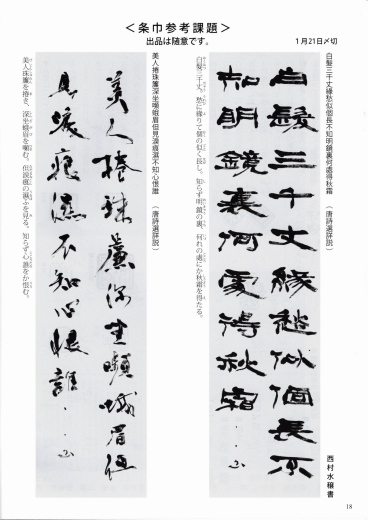 ＜条巾参考課題＞
出品は随意です。
１月21日〆切
白髪三千丈縁愁似個長不知明鏡裏何處得秋霜　（唐詩選評説）
白髪三千丈
縁愁似個長不
知明鏡裏何處得秋霜
西村水穣書
白髪三千丈、愁に縁りて個の似く長し。知らず明鏡の裏、何れの處にか秋霜を得たる。
美人捲珠簾深坐嚬蛾眉但見涙痕濕不知心恨誰　（唐詩選評説）
美人捲珠簾深坐嚬蛾眉但
見涙痕濕不知心恨誰
美人珠簾を捲き、深坐蛾眉を嚬む。但涙痕の濕ふを見る。知らず心誰をか恨む。
18